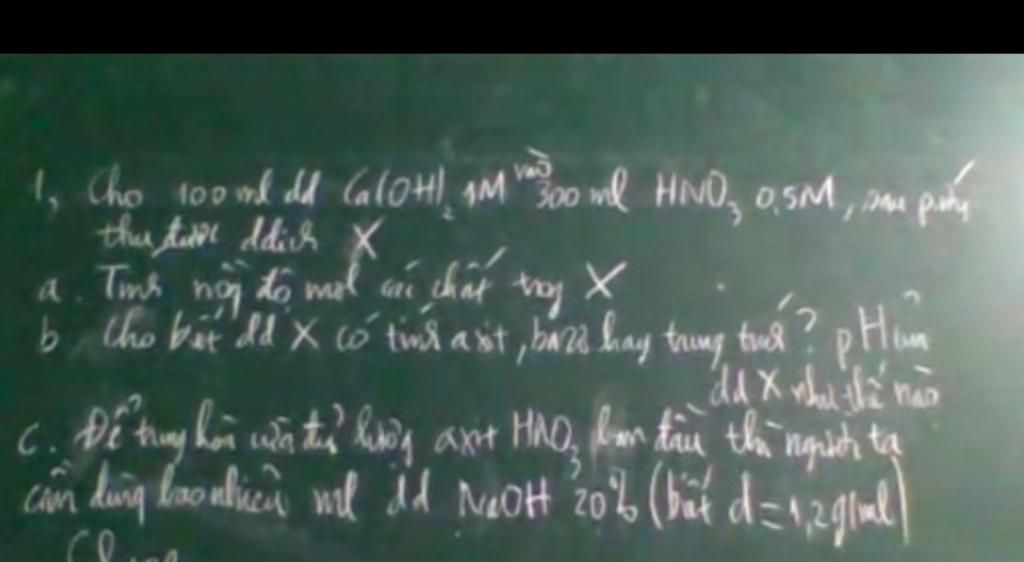 1, Cho 100 ml dd Ca(OH)₂ 1M vào 300 ml HNO₃ 0,5M, sau pứng
thu được ddịch X
a. Tính nồng độ mol các chất trong X
b Cho biết dd X có tính axit, bazơ hay trung tính? pH của
dd X như thế nào
c. Để trung hòa vừa đủ lượng axit HNO₃ ban đầu thì người ta
cần dùng bao nhiêu ml dd NaOH 20% (biết d = 1,2g/ml)